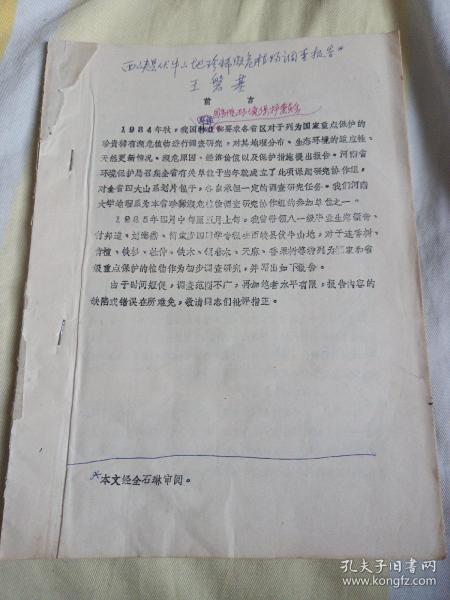 西峡伏牛山地珍稀濒危植物调查报告*
王磐基
前言
国务院环境保护委员会
1984年秋,我国林业部要求各省区对于列为国家重点保护的
珍贵稀有濒危植物进行调查研究,对其地理分布、生态环境的适应性、
天然更新情况、濒危原因、经济价值以及保护措施提出报告。河南省
环境保护局召集全省有关单位于当年就成立了此项课题研究协作组,
对全省四大山系划片包干,各自承担一定的调查研究任务。我们河南
大学地理系为本省珍稀濒危植物调查研究协作组的参加单位之一。
1985年四月中旬至五月上旬,我曾带领八一级毕业生
四同学专程去西峡县伏牛山地,对于连香树、
青檀、铁杉、杜仲、领春木、天麻、香果树等列为国家和省
级重点保护的植物作为初步调查研究,并写出如下报告。
由于时间短促,调查范围不广,再加笔者水平有限,报告内容的
缺陷或错误在所难免,敬请同志们批评指正。
*本文经金石琳审阅。
孔夫子旧书网
www.kongfz.com